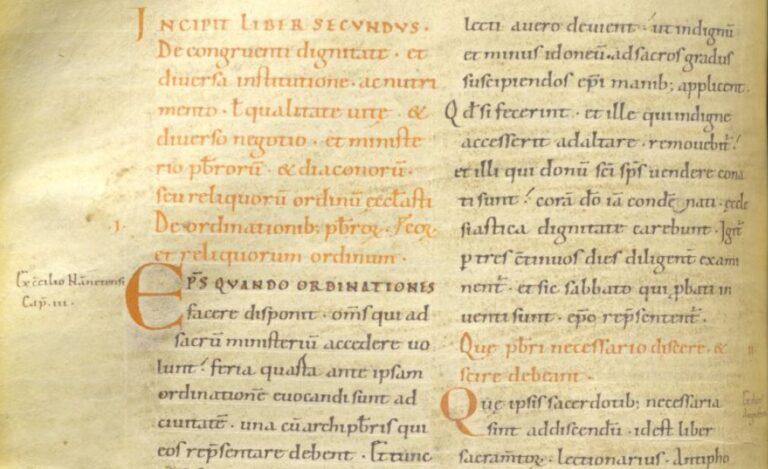 INCIPIT LIBER SECVNDVS.
De congruenti dignitate. et
diversa institutione. ac nutri
mento. ł qualitate uitę &
diverso negotio. et ministe
rio pb̄rorū. & diaconorū.
seu reliquorū ordinū eccl̄asti
I. De ordinationib; pb̄roꝝ.
et reliquorum ordinum.
Ex c̄cilio Nannetensi
Cap̄. III.
EP̄S QVANDO ORDINATIONES
facere disponit. om̄s qui ad
sacrū ministeriū accedere uo
lunt. feria quarta ante ipsam
ordinationē euocandi sunt ad
ciuitatē. una cū archipb̄ris qui
eos rep̄sentare debent. Et tunc
lecti auero deuient. ut indignū
et minus idoneū. ad sacros gradus
suscipiendos ep̄i manib; applicent.
Qd̄ si fecerint. et ille qui indigne
accesserit ad altare. remouebit̄.
et illi qui donū sc̄i sp̄s uendere cona
ti sunt. corā dō iā condēnati. eccle
siastica dignitate carebunt. Igit̄
p tres c̄tinuos dies diligent̄ exami
nent̄. et sic sabbato qui p̱bati in
uenti sunt. ep̄o rep̄sentent̄.
Quę pb̄ri necessario discere. & II
scire debeant.
Quę ipsis sacerdotib; necessaria
sint ad discendū. id est liber
sacram̄toꝝ. lectionarius. Antipho